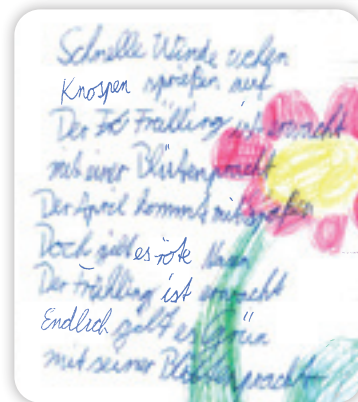 Schnelle Winde wehen
Knospen sprießen auf
Der Frühling ist erwacht
mit einer Blütenpracht
Der April kommt mit
Doch gibt es rote
Der Frühling ist erwacht
Endlich gibt es Grün
mit seiner Blütenpracht